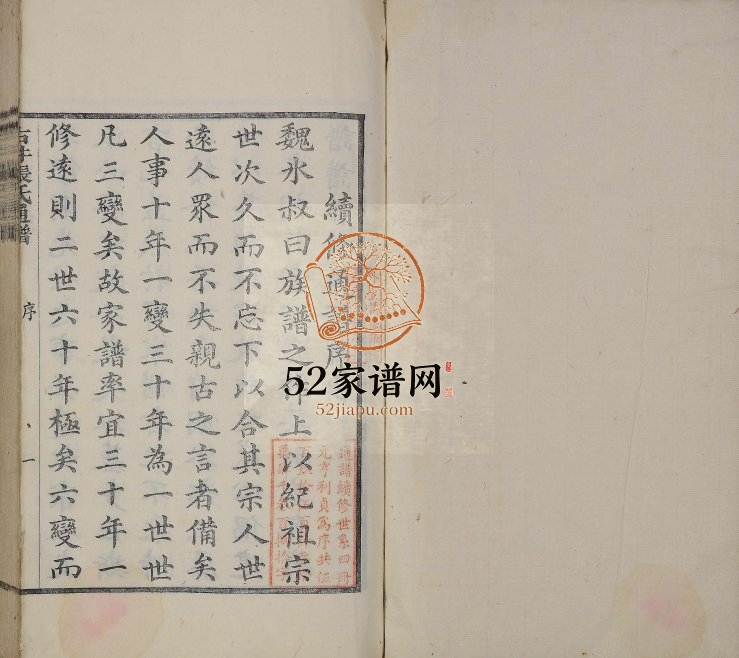 續修通譜序
魏氷叔曰族譜之作上以紀祖宗
世次久而不忘下以合其宗人世
遠人眾而不失親古之言者備矣
人事十年一變三十年為一世世
凡三變矣故家譜率宜三十年一
修遠則二世六十年極矣六變而
張氏通譜
序
一
通譜續修世系四冊
元亨利貞為序共伍
52家谱网
52jiapu.com